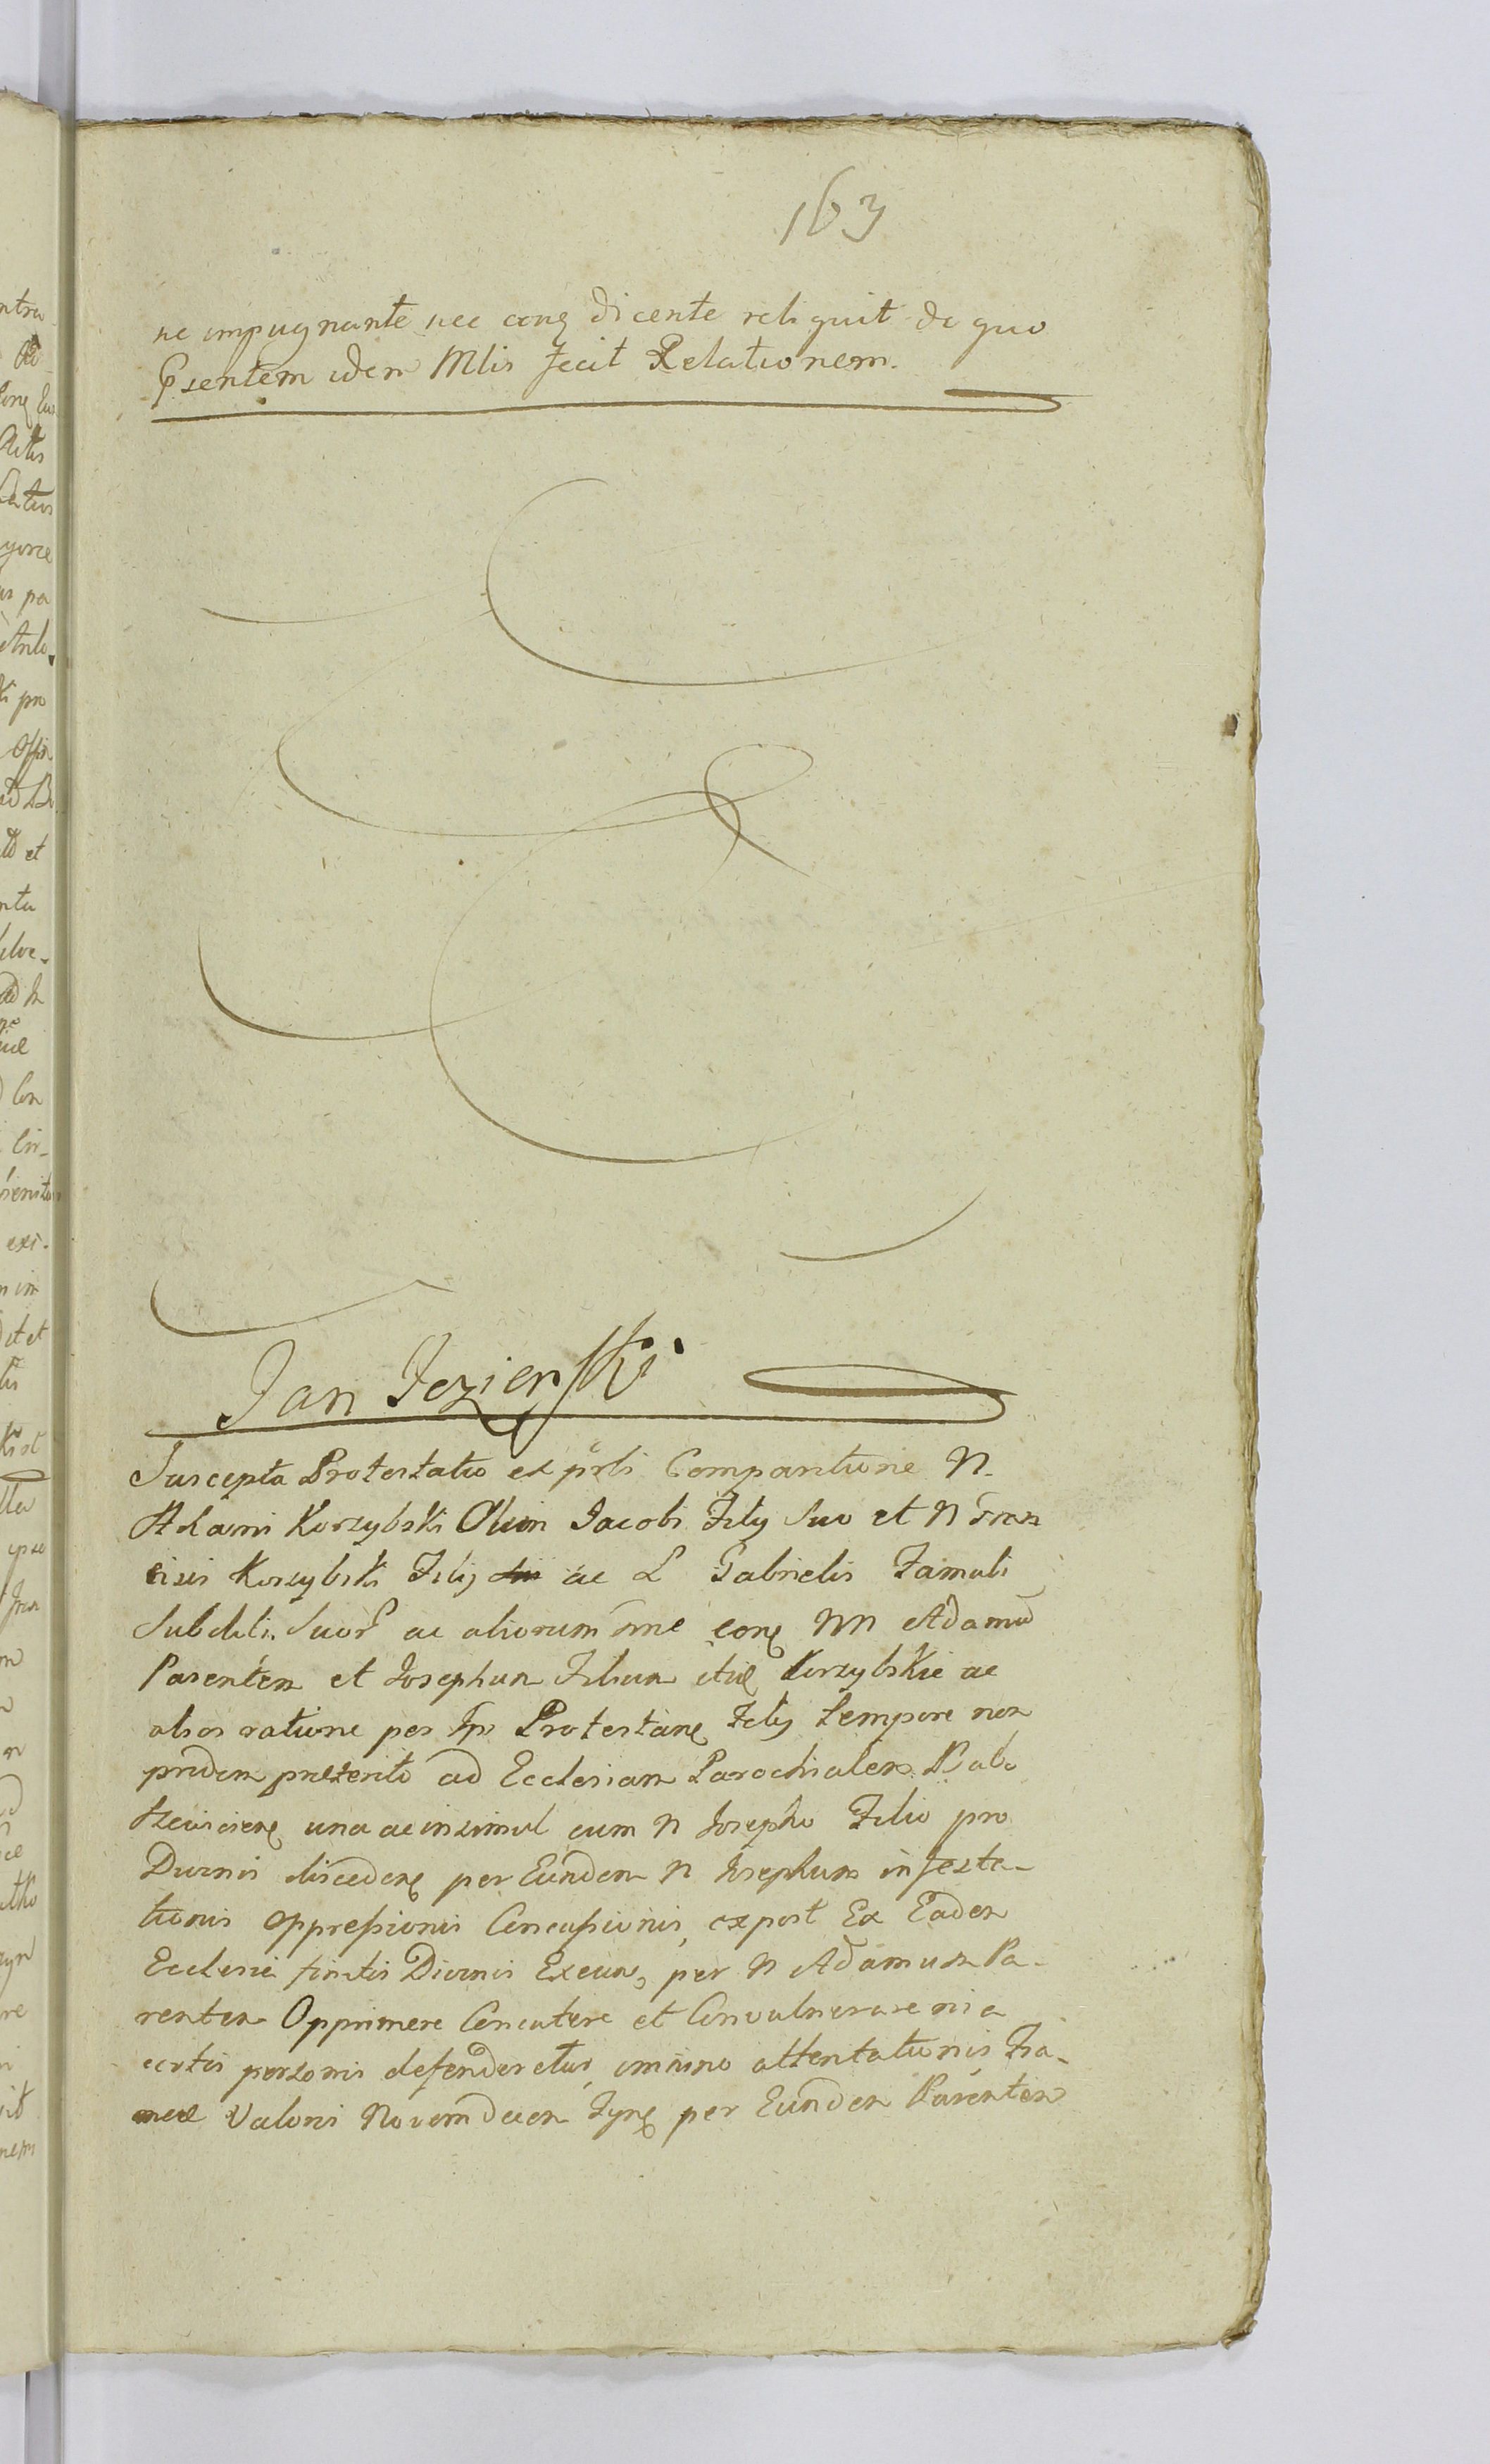 163
ne impugnante nec conz dicente reliquit de quo
Psentem idem Mlis fecit Relationem.
Jan Jezierski
Suscepta Protestatio ex psli Comparitione N.
Adami Korzybski Olim Jacobi Filij suo et N Fran
cisci Korzybski Filij sui ac L Gabrielis Famuli
Subditi Suor ac aliorum nne conz NN Adamu
Parentem et Josephum Filium itid Korzybskie ac
alios ratione per Ip Protestanz Filij tempore non
pridem præterito ad Ecclesiam Parochialem Babo
una ac insimul cum N Josepho Filio pro
Divinis discedenz per Eundem N Josephum infesta-
tionis oppressionis Concussionis, expost Ex Eadem
Ecclesia finitis Divinis Exeun, per N Adamum Pa-
rentem Opprimere Concutere et Convulnerare ni a
certis personis defenderetur, imoino attentationis Fra-
meæ Valoris Novemdecem Tynz per Eundem Parentem